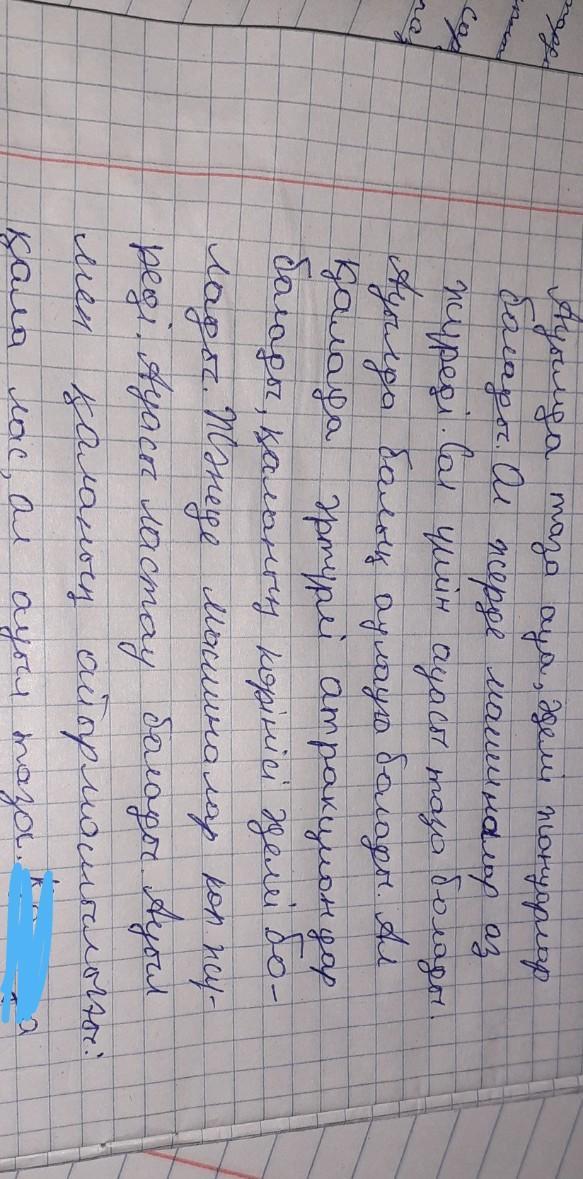 Ауылда таза ауа, әдемі жануарлар
болады. Ол жерде машиналар аз
жүреді. Сол үшін ауасы таза болады.
Ауылда балық аулауға болады. Ал
қалада әртүрлі атракциондар
болады, қаланың көрінісі әдемі бо-
лады. Жәнеде машиналар көп жү-
реді. Ауасы ластау болады. Ауыл
мен қаланың айырмашылығы:
қала лас, ал ауыл таза.